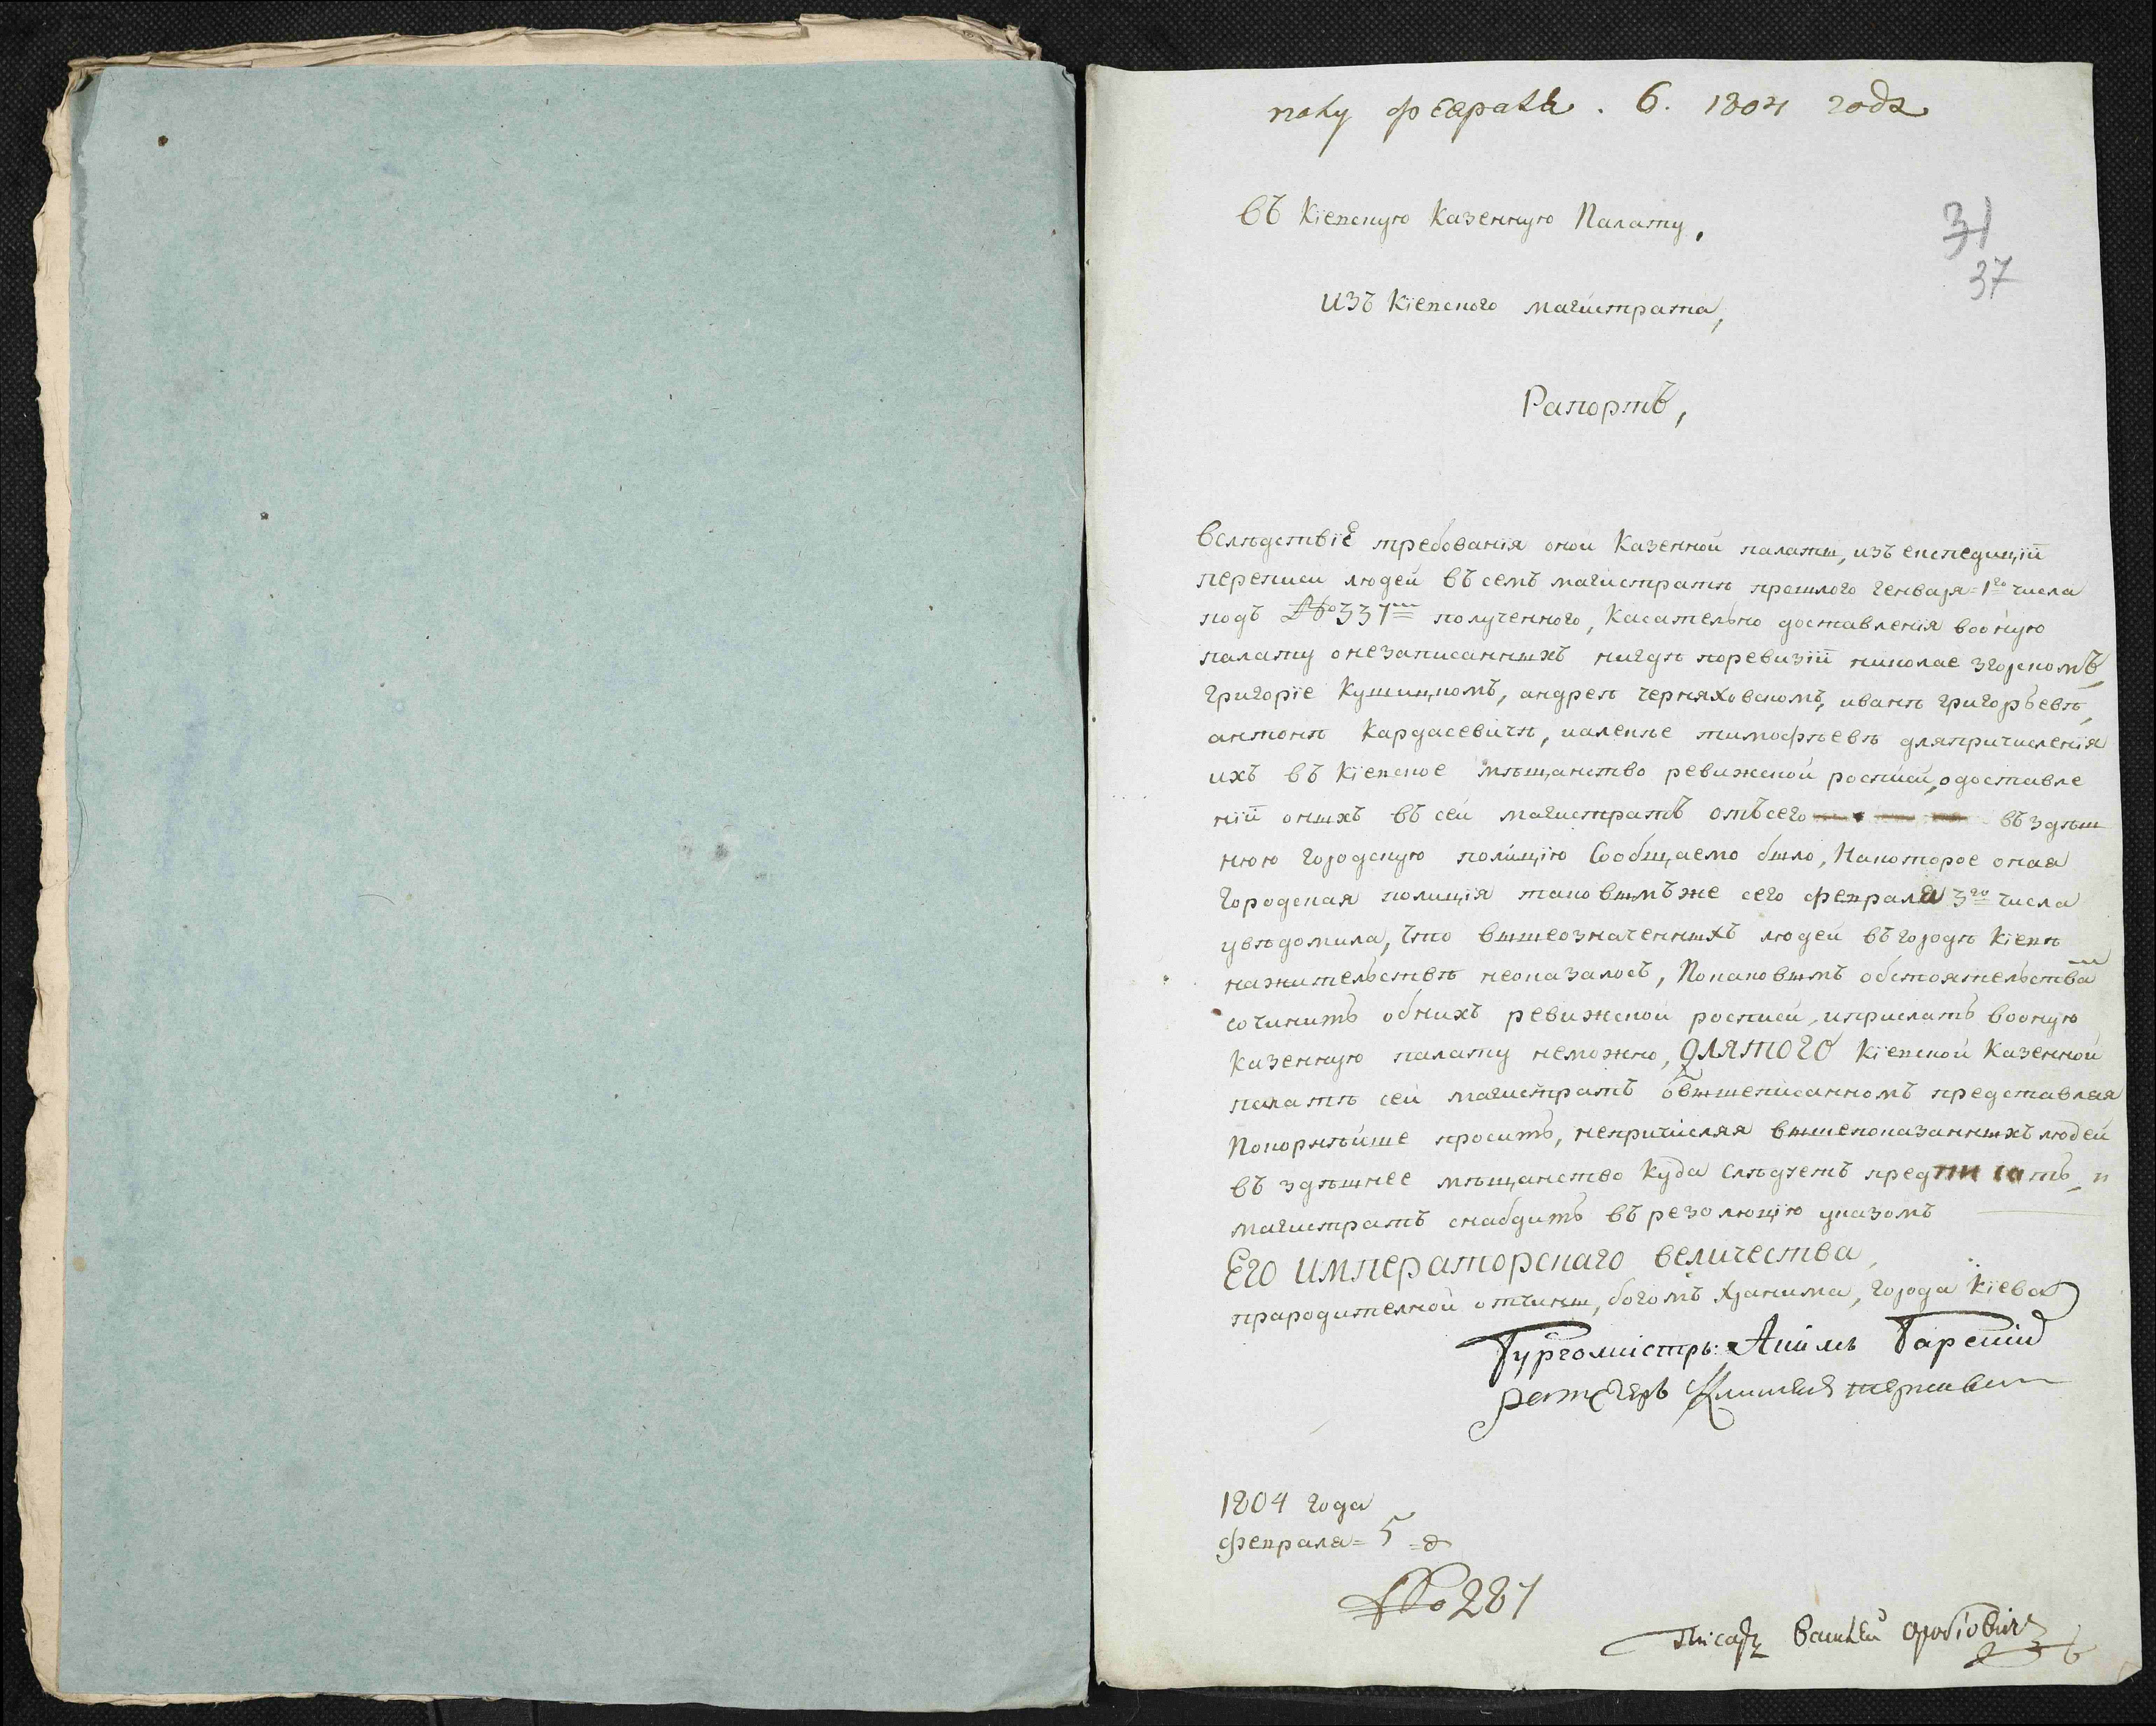 полу февраля. 6. 1804 года
Въ Кіевскую Казенную Палату,
31
37
изъ Кіевского магистрата,
Рапортъ,
Вслѣдствіе требованія оной Казенной палаты, изъ експедиціи
переписи людей въ семъ магистратѣ прошлого генваря 1го числа
подъ № 337м полученного, Касательно доставленія вооную
палату онезаписанныхъ нигдѣ поревизіи николае згорскомъ,
григоріе Кушицкомъ, андреѣ Черняховскомъ, иванѣ григорьевѣ,
антонѣ Кардасевичѣ, иалексѣе тимофѣевѣ дляпричисленія
ихъ въ Кіевское мѣщанство ревижской росписи, одоставле
ніи оныхъ въ сей магистратъ отъсего въздѣш
нюю городскую полицію Сообщаемо было, Накоторое оная
городская полиція таковымъже сего февраля 3го числа
увѣдомила, что вышеозначенныхъ людей въгородѣ Кіевѣ
нажительствѣ неоказалось, Покаковымъ обстоятельства
сочинить обнихъ ревижской росписи, иприслать вооную
Казенную палату неможно, длятого Кіевской Казенной
палатѣ сей магистратъ овышеписанномъ представляя
Покорнѣйше проситъ, непричисляя вышепоказанныхъ людей
въ здѣшнее мѣщанство Куда слѣдуетъ предписать, и
магистратъ снабдить въ резолюцію указомъ
Его императорскаго величества,
прародителной отчины, богомъ хранима, города Кіева
Бургомистръ: Акимъ Барскій
ратсгеръ
1804 года
февраля = 5 = д
№ 287
Писарь Василей